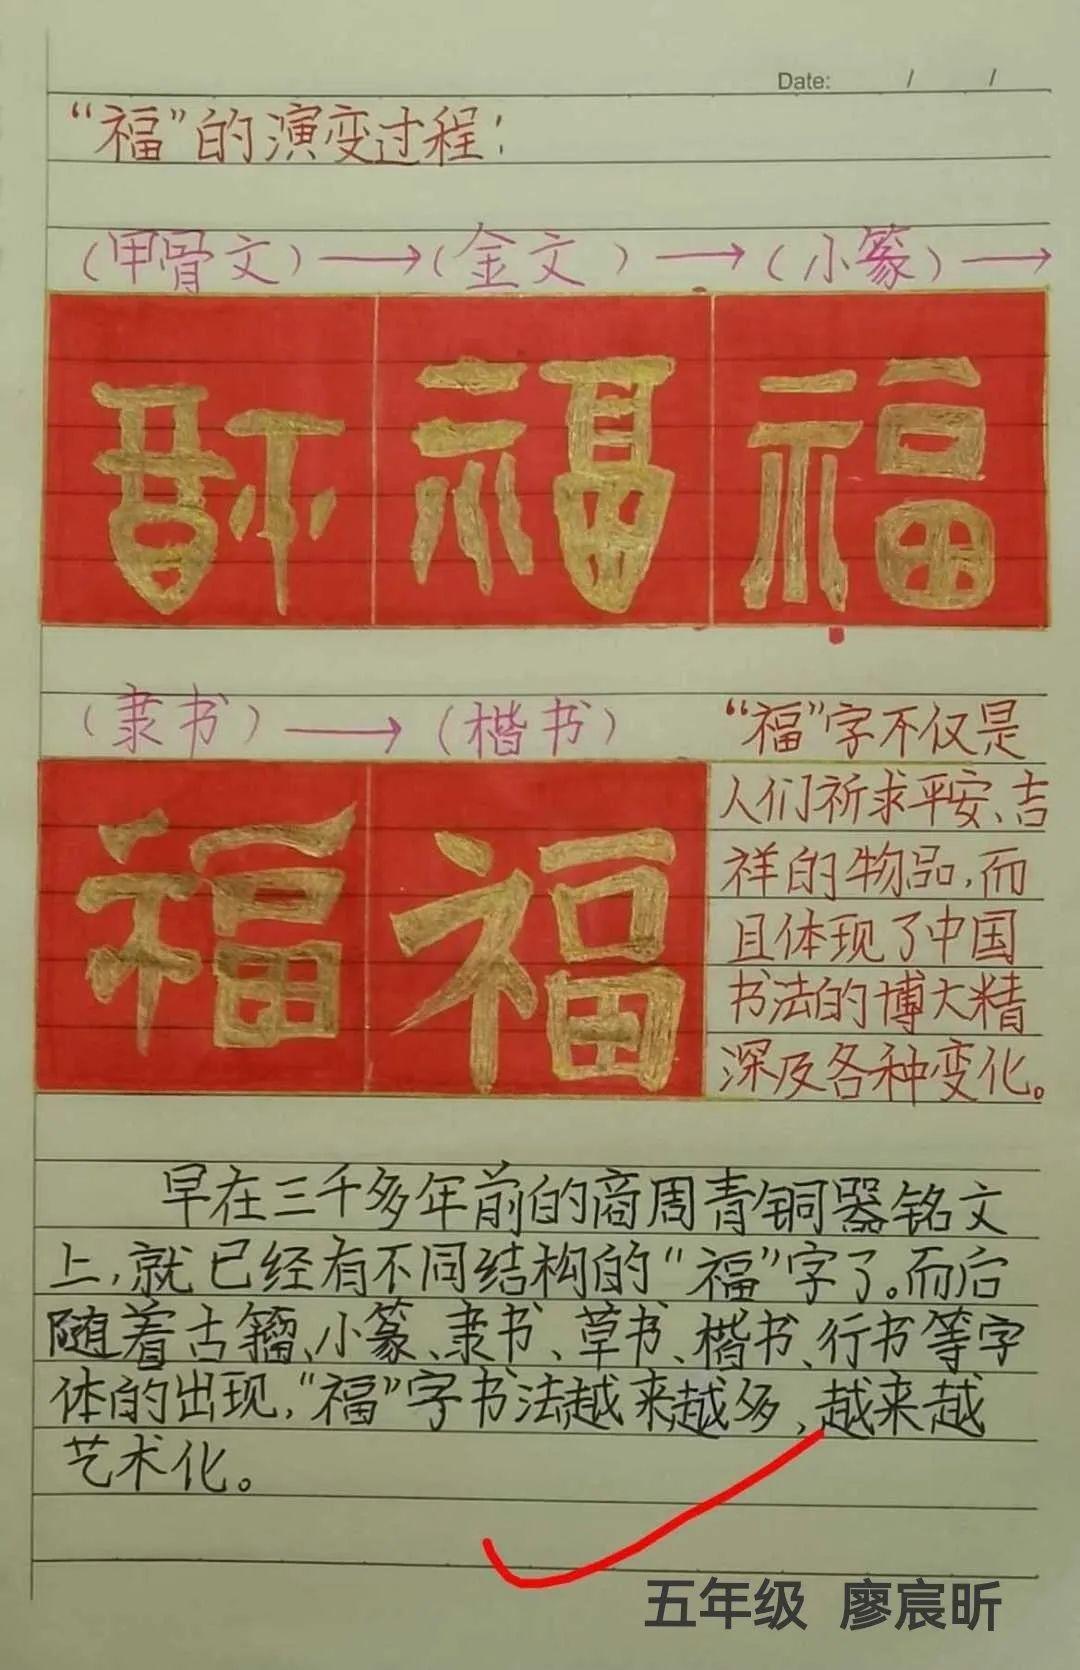 Date: / /
“福”的演变过程：
（甲骨文）→（金文）→（小篆）→
福 福 福
（隶书）→（楷书）
福 福
“福”字不仅是
人们祈求平安、吉
祥的物品，而
且体现了中国
书法的博大精
深及各种变化。
早在三千多年前的商周青铜器铭文
上，就已经有不同结构的“福”字了。而后
随着古籀、小篆、隶书、草书、楷书、行书等字
体的出现，“福”字书法越来越多，越来越
艺术化。
五年级 廖宸昕